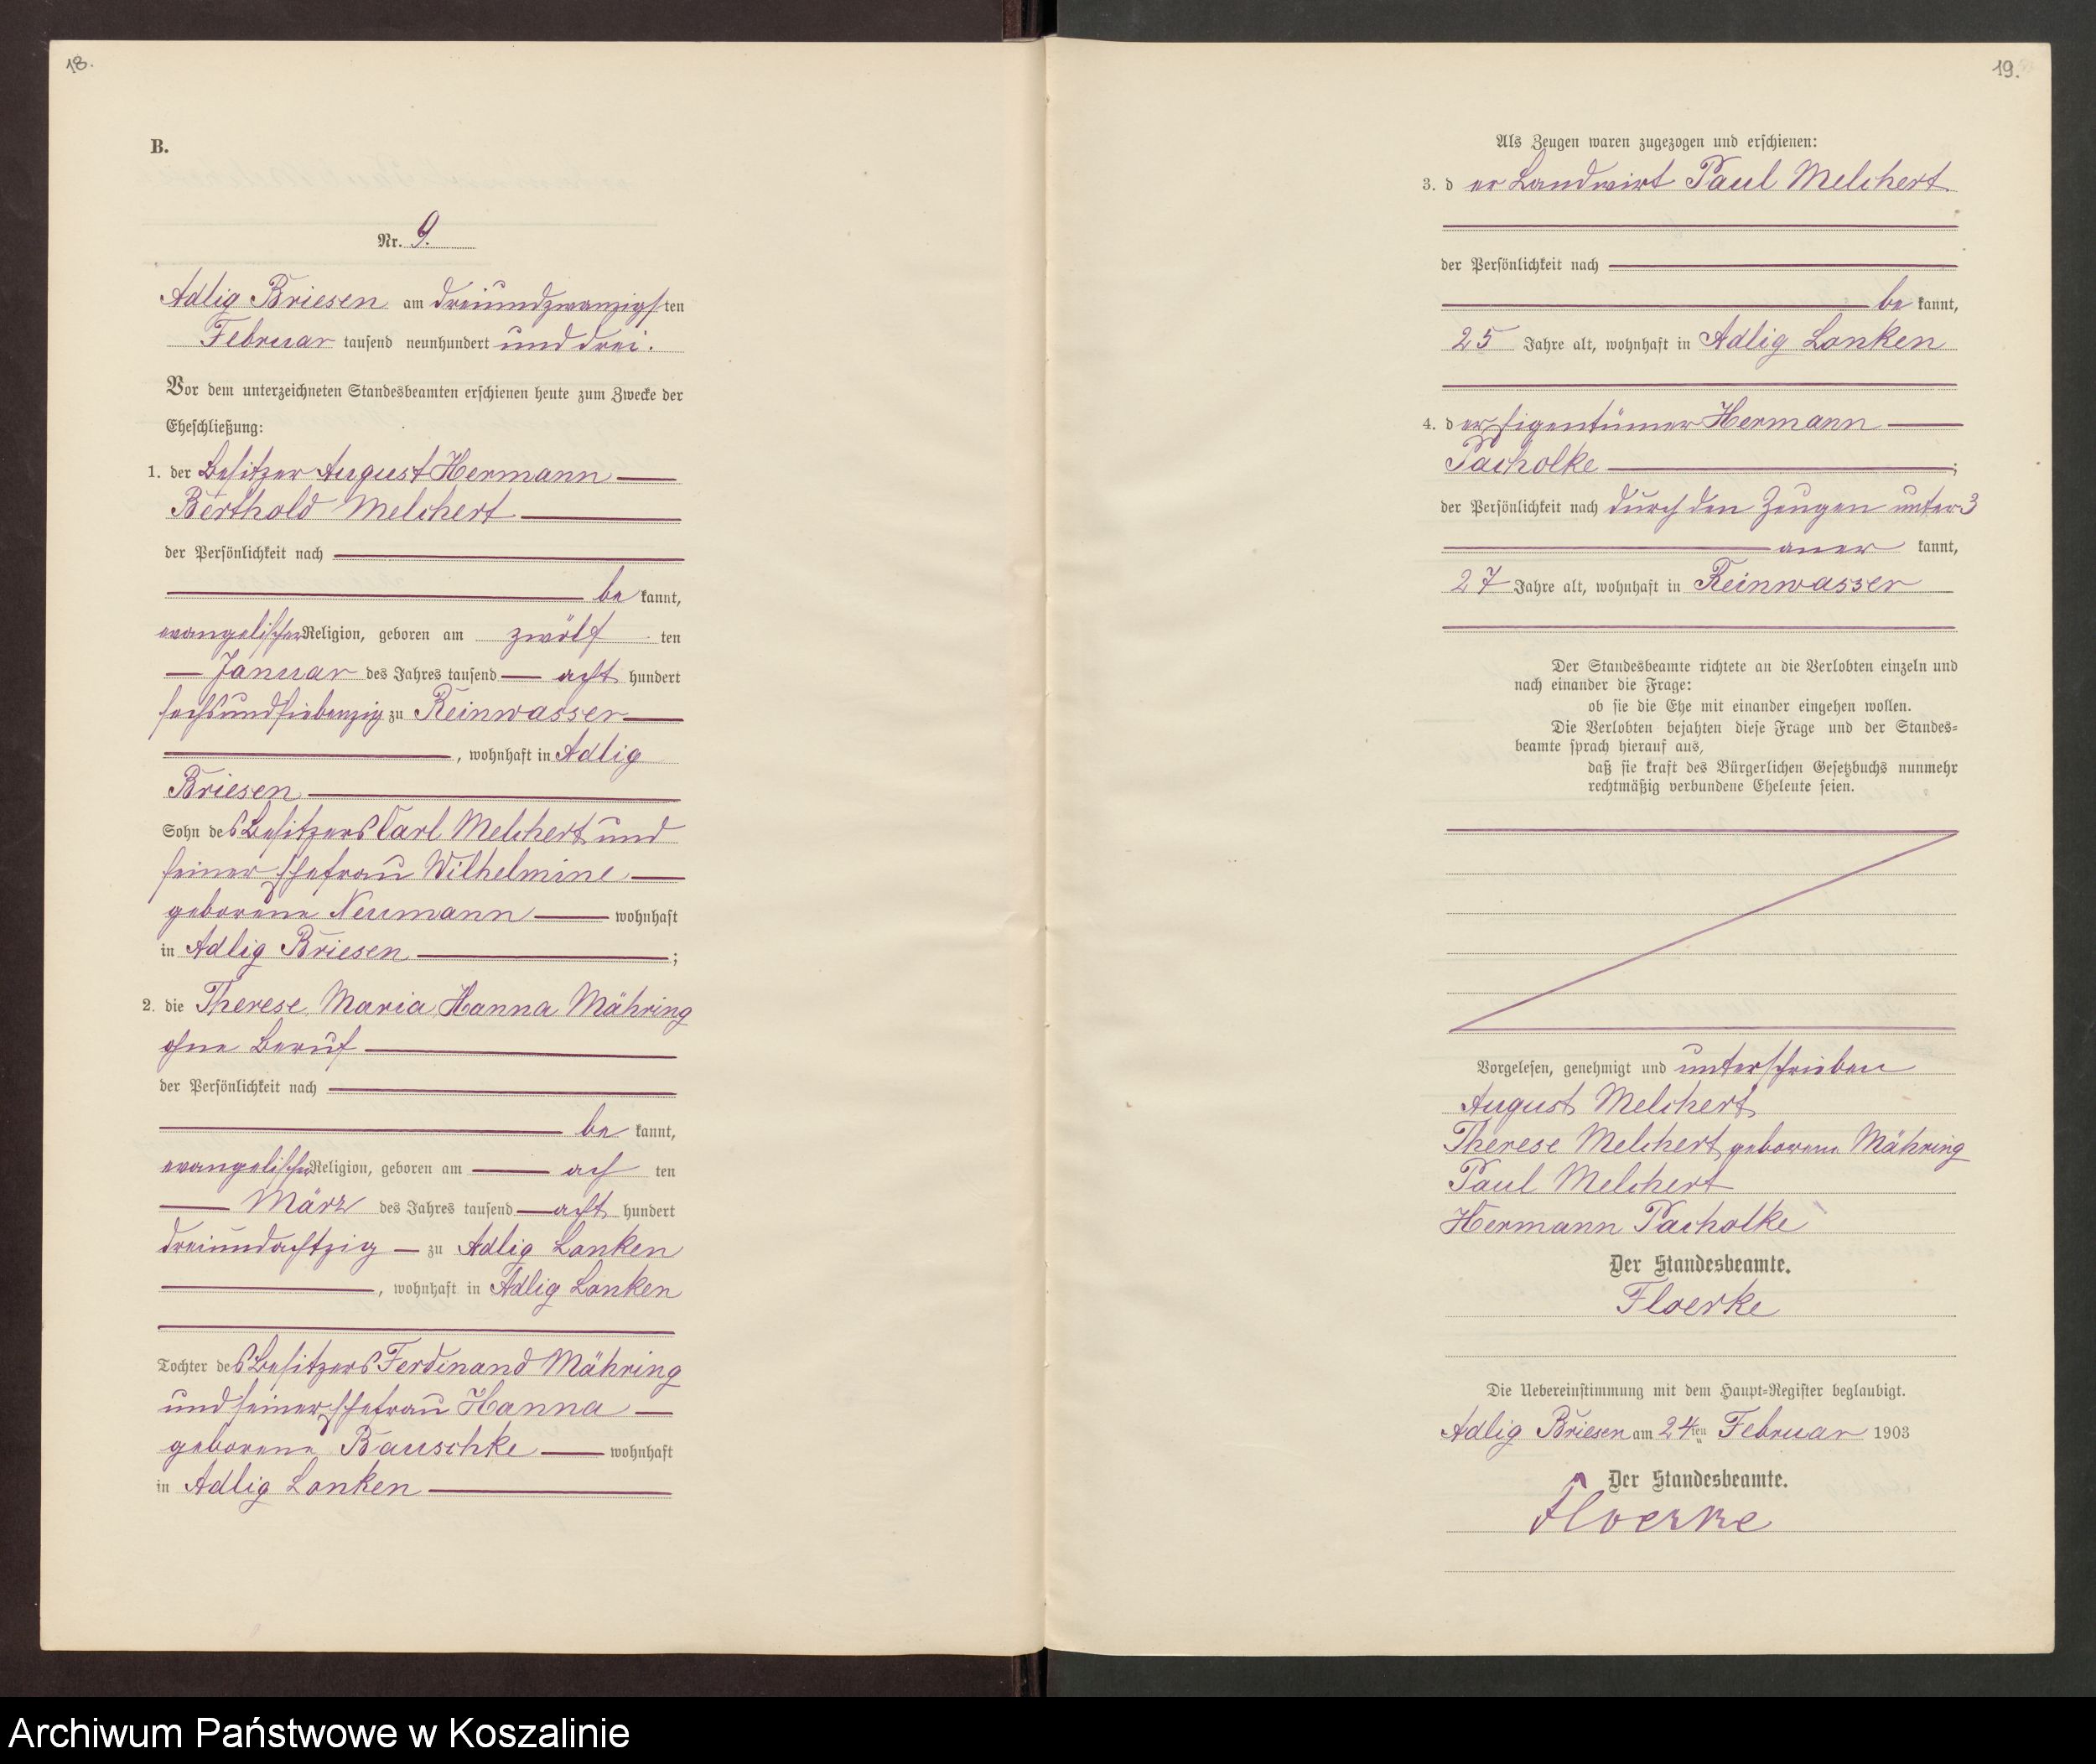 18.
B.
Nr. 9.
Adlig Briesen am dreiundzwanzigsten
Februar tausend neunhundert und drei.
Vor dem unterzeichneten Standesbeamten erschienen heute zum Zwecke der
Eheschließung:
1. der Besitzer August Hermann
Berthold Melchert
der Persönlichkeit nach
be kannt,
evangelischer Religion, geboren am zwölf ten
Januar des Jahres tausend acht hundert
sechsundsiebenzig zu Reinwasser
, wohnhaft in Adlig
Briesen
Sohn des Besitzers Carl Melchert und
seiner Ehefrau Wilhelmine
geborene Neumann wohnhaft
in Adlig Briesen ;
2. die Therese Maria Hanna Mähring
ohne Beruf
der Persönlichkeit nach
be kannt,
evangelischer Religion, geboren am ach ten
März des Jahres tausend acht hundert
dreiundachtzig zu Adlig Lonken
, wohnhaft in Adlig Lonken
Tochter des Besitzers Ferdinand Mähring
und seiner Ehefrau Hanna
geborene Bauschke wohnhaft
in Adlig Lonken
19.
Als Zeugen waren zugezogen und erschienen:
3. der Landwirt Paul Melchert
der Persönlichkeit nach
be kannt,
25 Jahre alt, wohnhaft in Adlig Lonken
4. der Eigentümer Hermann
Pacholke ;
der Persönlichkeit nach durch den Zeugen unter 3
aner kannt,
27 Jahre alt, wohnhaft in Reinwasser
Der Standesbeamte richtete an die Verlobten einzeln und
nach einander die Frage:
ob sie die Ehe mit einander eingehen wollen.
Die Verlobten bejahten diese Frage und der Standes-
beamte sprach hierauf aus,
daß sie kraft des Bürgerlichen Gesetzbuchs nunmehr
rechtmäßig verbundene Eheleute seien.
Vorgelesen, genehmigt und unterschrieben
August Melchert
Therese Melchert geborene Mähring
Paul Melchert
Hermann Pacholke
Der Standesbeamte.
Floerke
Die Uebereinstimmung mit dem Haupt-Register beglaubigt.
Adlig Briesen am 24ten Februar 1903
Der Standesbeamte.
Floerke
Archiwum Państwowe w Koszalinie